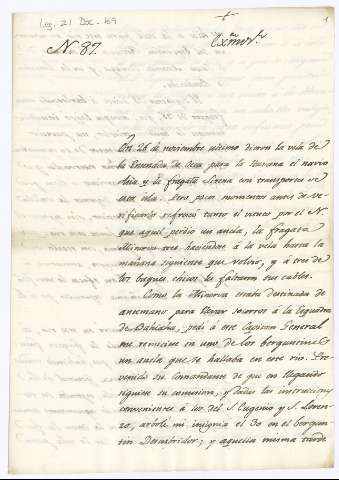 Leg. 21 Doc. 169
1
N. 87.
Exmo. Sr.
En 26 de noviembre ultimo dieron la vela de
la Ensenada de para la Havana el navio
Asia y la fragata Sirena con transportes
Pero pocos momentos antes de ve-
rificarlo refrescó tanto el viento por el N
que aquel perdio un ancla, la fragata
Minerva tres haciendose á la vela hasta la
mañana siguiente que volvio, y á tres de
los buques chicos le faltaron sus cables.
Como la Minerva estaba destinada de
antemano para llevar socorros á la
de Bahaina, pedi á este Capitan General
me remitiese en uno de los bergantines
un ancla que se hallaba en este rio. Pre-
venido su Comandante de que en llegando
siguiese su comision, y dadas las instrucciones
convenientes á los del S. Eugenio y S. Loren-
zo, arbolé mi insignia el 30 en el bergan-
tin Descubridor; y aquella misma tarde